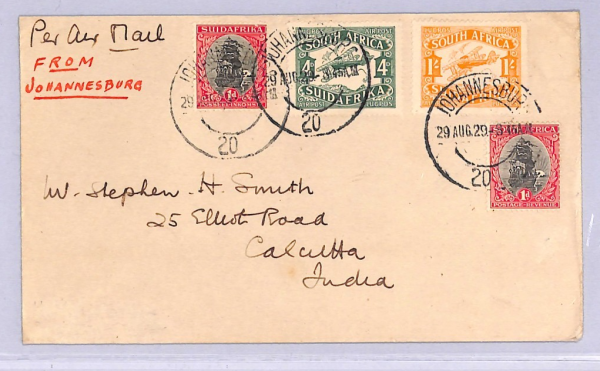 Per Air Mail
FROM
JOHANNESBURG
SUIDAFRIKA
1d
JOHANNESBURG
29
20
SOUTH AFRICA
4d
SUIDAFRIKA
JOHANNESBURG
AUG
20
SOUTH AFRICA
1/- 1/-
SUIDAFRIKA
JOHANNESBURG
29 AUG.29
20
AFRICA
1d
POSTAGE-REVENUE
W. Stephen. H. Smith
25 Elliot Road
Calcutta
India